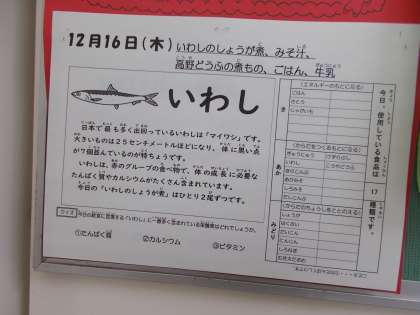 12月16日(木) いわしのしょうが煮、みそ汁、
高野どうふの煮もの、ごはん、牛乳
いわし
日本で最も多く出回っているいわしは「マイワシ」です。
大きいものは25センチメートルほどになり、体に黒い点
が7個並んでいるのが特ちょうです。
いわしは、赤のグループの食べ物で、体の成長に必要な
たんぱく質やカルシウムがたくさん含まれています。
今日の「いわしのしょうが煮」はひとり2尾ずつです。
クイズ
今日の給食に登場する「いわし」に一番多く含まれている栄養素はどれでしょうか。
①たんぱく質 ②カルシウム ③ビタミン
今日、使用している食品は 17 種類です。
き
(エネルギーのもとになる)
ごはん
さとう
じゃがいも
あか
(からだをつくるもとになる)
ぎゅうにゅう
いわし
みどり
(からだのちょうしをととのえる)
しょうが
はくさい
だいこん
にんじん